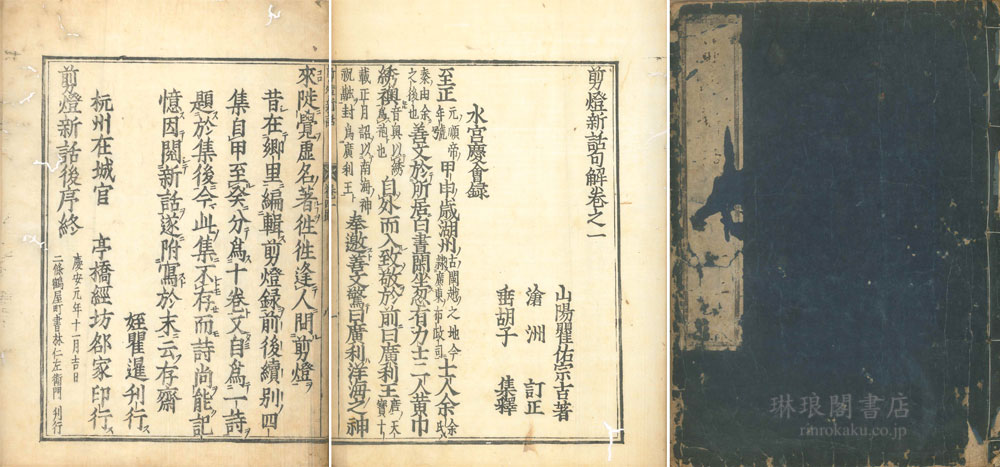 剪燈新話句解卷之一
山陽瞿佑宗吉著
滄洲 訂正
垂胡子 集釋
水宮慶會録
至正元順帝年號甲申歲潮州古閩越之地今隷廣東布政司士人余余氏秦由余之後也善文於所居白晝閑坐忽有力士二人黄巾
繡襖音奥以繡爲袍也自外而入致敬於前曰廣利王唐天寶十載正月詔以南海神祝融封爲廣利王奉邀善文驚曰廣利洋海之神
來陡覺虛名著徃徃逢人問剪燈
昔在鄉里編輯剪燈録前後續別四
集自甲至癸分爲十卷又自爲一詩
題於集後今此集不存而詩尚能記
憶因閲新話遂附寫於末云存齋
姪瞿暹刊行
杭州在城官 亭橋經坊邰家印行
剪燈新話後序終
慶安元年十一月吉日
二條鶴屋町書林仁左衞門 刊行
琳琅閣書店
rinrokaku.co.jp